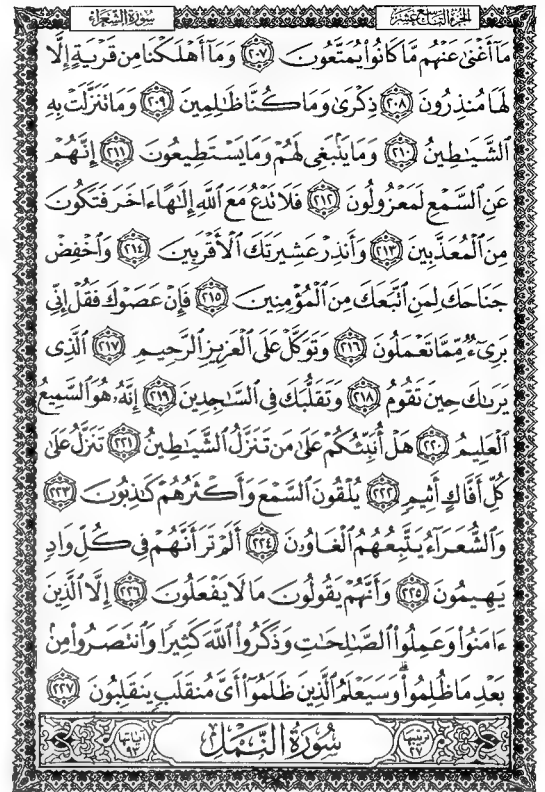 الجزء التاسع عشر
سورة الشعراء
مَآ أَغْنَىٰ عَنْهُم مَّا كَانُوا۟ يُمَتَّعُونَ ٢٠٧ وَمَآ أَهْلَكْنَا مِن قَرْيَةٍ إِلَّا
لَهَا مُنذِرُونَ ٢٠٨ ذِكْرَىٰ وَمَا كُنَّا ظَـٰلِمِينَ ٢٠٩ وَمَا تَنَزَّلَتْ بِهِ
ٱلشَّيَـٰطِينُ ٢١٠ وَمَا يَنۢبَغِى لَهُمْ وَمَا يَسْتَطِيعُونَ ٢١١ إِنَّهُمْ
عَنِ ٱلسَّمْعِ لَمَعْزُولُونَ ٢١٢ فَلَا تَدْعُ مَعَ ٱللَّهِ إِلَـٰهًا ءَاخَرَ فَتَكُونَ
مِنَ ٱلْمُعَذَّبِينَ ٢١٣ وَأَنذِرْ عَشِيرَتَكَ ٱلْأَقْرَبِينَ ٢١٤ وَٱخْفِضْ
جَنَاحَكَ لِمَنِ ٱتَّبَعَكَ مِنَ ٱلْمُؤْمِنِينَ ٢١٥ فَإِنْ عَصَوْكَ فَقُلْ إِنِّى
بَرِىٓءٌ مِّمَّا تَعْمَلُونَ ٢١٦ وَتَوَكَّلْ عَلَى ٱلْعَزِيزِ ٱلرَّحِيمِ ٢١٧ ٱلَّذِى
يَرَىٰكَ حِينَ تَقُومُ ٢١٨ وَتَقَلُّبَكَ فِى ٱلسَّـٰجِدِينَ ٢١٩ إِنَّهُۥ هُوَ ٱلسَّمِيعُ
ٱلْعَلِيمُ ٢٢٠ هَلْ أُنَبِّئُكُمْ عَلَىٰ مَن تَنَزَّلُ ٱلشَّيَـٰطِينُ ٢٢١ تَنَزَّلُ عَلَىٰ
كُلِّ أَفَّاكٍ أَثِيمٍ ٢٢٢ يُلْقُونَ ٱلسَّمْعَ وَأَكْثَرُهُمْ كَـٰذِبُونَ ٢٢٣
وَٱلشُّعَرَآءُ يَتَّبِعُهُمُ ٱلْغَاوُۥنَ ٢٢٤ أَلَمْ تَرَ أَنَّهُمْ فِى كُلِّ وَادٍ
يَهِيمُونَ ٢٢٥ وَأَنَّهُمْ يَقُولُونَ مَا لَا يَفْعَلُونَ ٢٢٦ إِلَّا ٱلَّذِينَ
ءَامَنُوا۟ وَعَمِلُوا۟ ٱلصَّـٰلِحَـٰتِ وَذَكَرُوا۟ ٱللَّهَ كَثِيرًا وَٱنتَصَرُوا۟ مِنۢ
بَعْدِ مَا ظُلِمُوا۟ ۗ وَسَيَعْلَمُ ٱلَّذِينَ ظَلَمُوٓا۟ أَىَّ مُنقَلَبٍ يَنقَلِبُونَ ٢٢٧
ترتيبها ٢٧
سُورَةُ النَّمْلِ
آياتها ٩٣